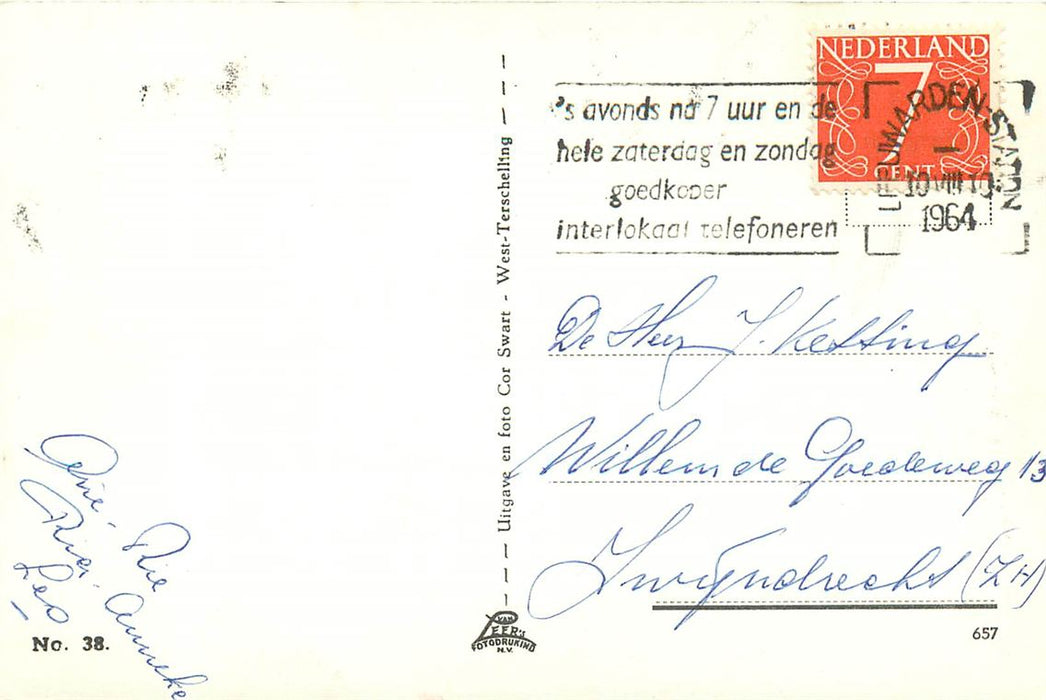 NEDERLAND
7
CENT
LEEUWARDEN-STATION
10 VIII 10
1964
's avonds na 7 uur en de
hele zaterdag en zondag
goedkoper
interlokaal telefoneren
De Heer J. Ketting
Willem de Goedeweg 13
Zwijndrecht (ZH)
657
Uitgave en foto Cor Swart - West-Terschelling
Rie
Anneke
Leo
No. 38.
VAN
LEER's
FOTODRUKIND
N.V.